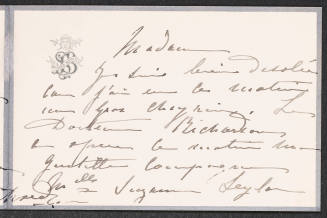 Madame
Je suis bien désolée
car j'ai eu ce matin
un gros chagrin. Le
Docteur Richardson
a opéré ce matin ma
gentille compagne
Melle Suzanne Seylor